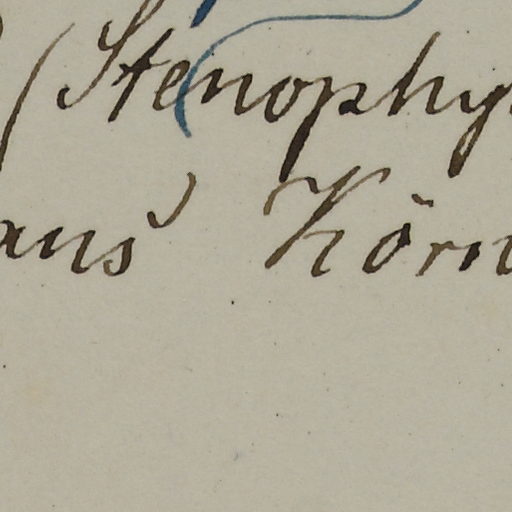 (Stenophy
ans) Körn